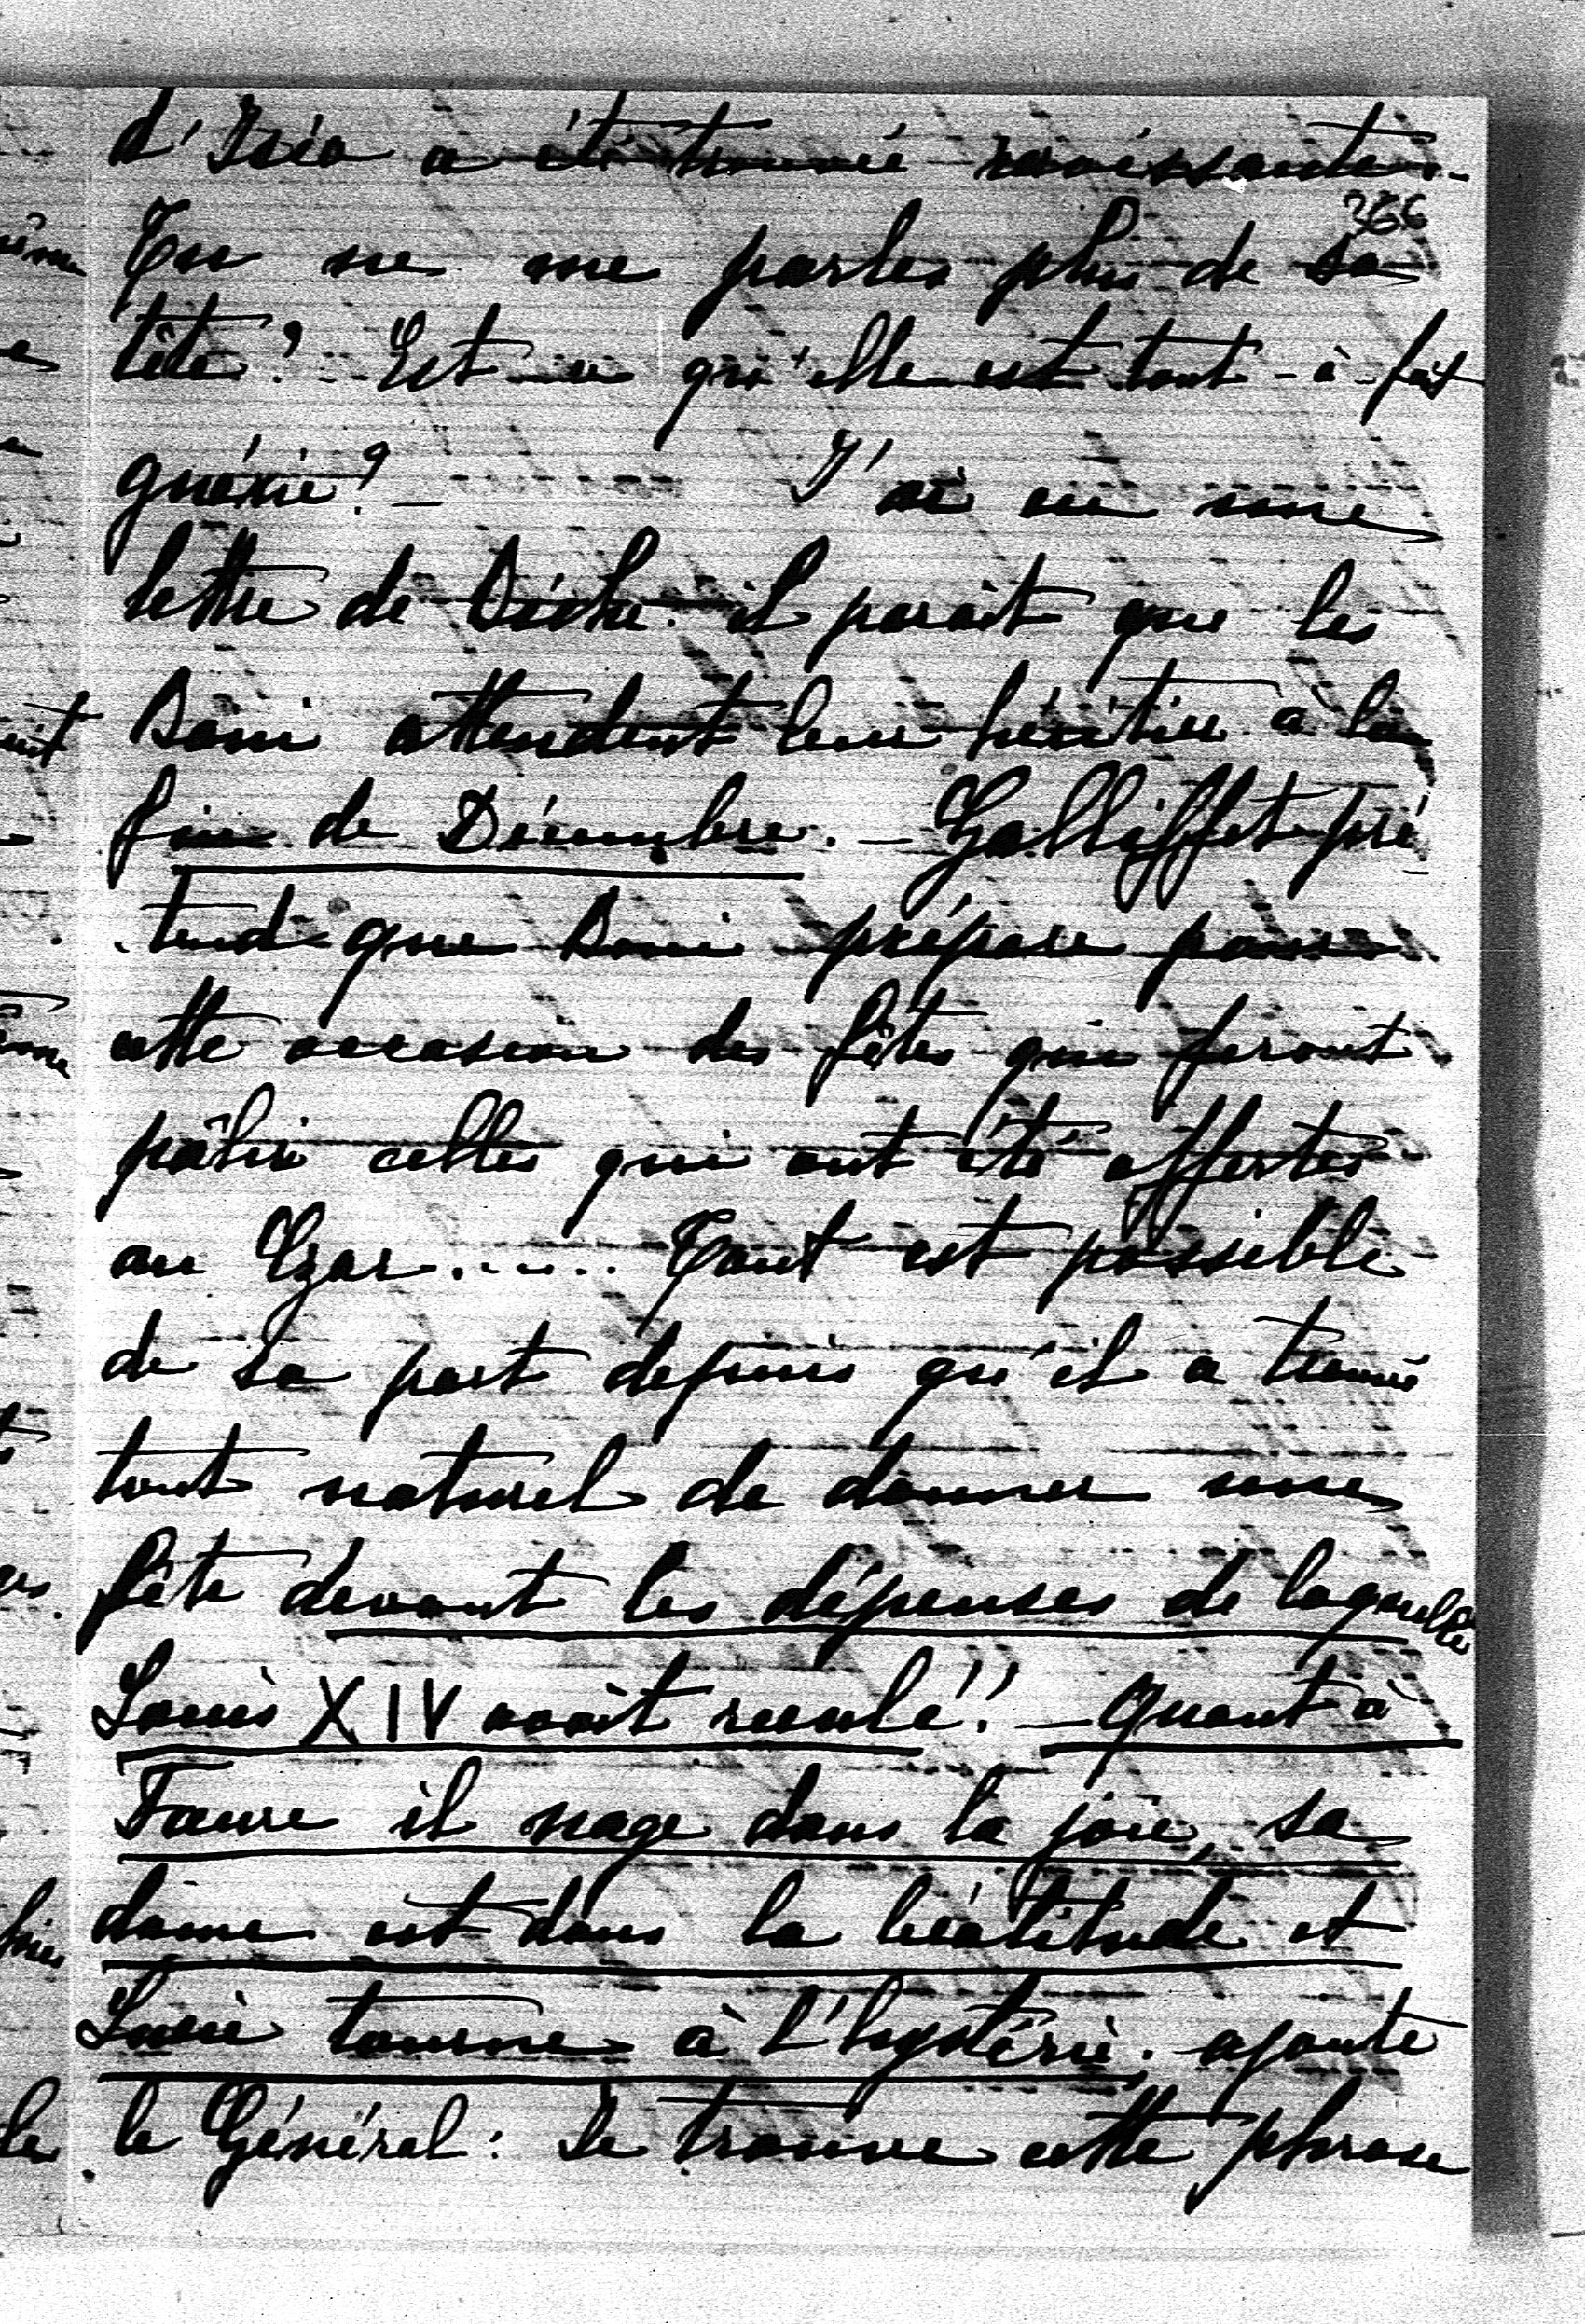 d'Isia a été trouvée ravissante.
366
Tu ne me parles plus de ta
tête? Est-ce qu'elle est tout-à-fait
guérie? — J'ai eu une
lettre de Biche. il paraît que les
Boni attendent leur héritier à la
fin de Décembre. — Galliffet pré
tend que Boni prépare pour
cette occasion des fêtes qui feront
pâlir celles qui ont été offertes
au Czar...... Tout est possible
de sa part depuis qu'il a trouvé
tout naturel de donner une
fête devant les dépenses de laquelle
Louis XIV avait reculé!! — Quant à
Faure il nage dans la joie, sa
dame est dans la béatitude et
Lucie tourne à l'hystérie. ajoute
le Général: Je trouve cette phrase